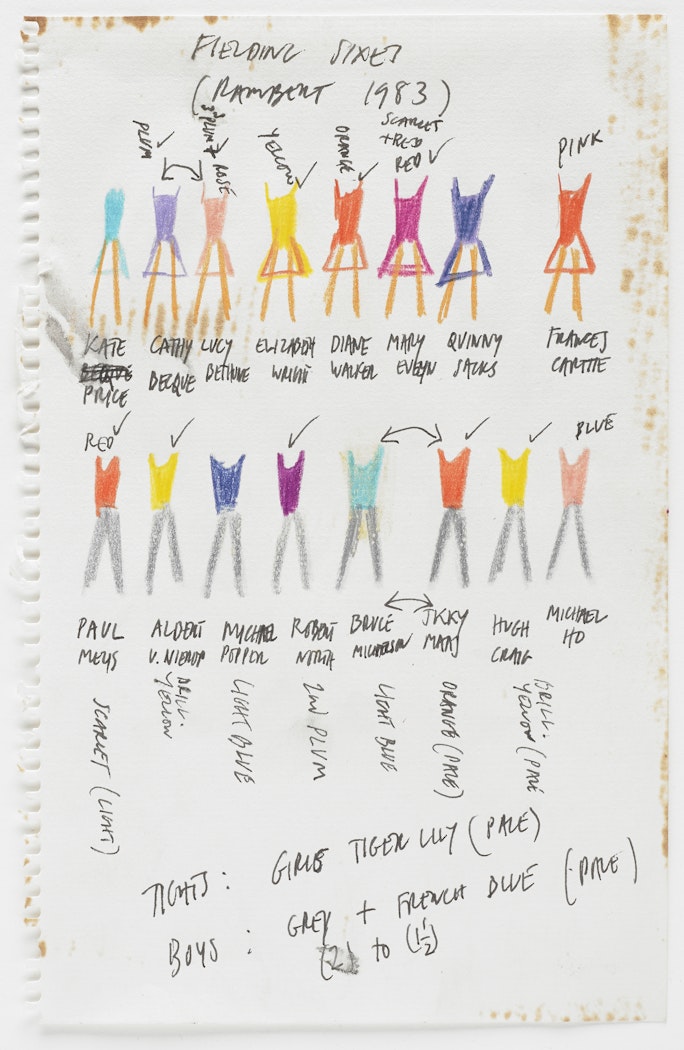 FIELDING SIXES
(RAMBERT 1983)
PLUM
3RD PLUM + ROSE
YELLOW
ORANGE
SCARLET
+ RED
RED
PINK
KATE
PRICE
CATHY
BECQUE
LUCY
BETHUNE
ELIZABETH
WRIGHT
DIANE
WALKER
MARY
EVELYN
QUINNY
SACKS
FRANCES
CARTTIE
RED
BLUE
PAUL
MELIS
ALBERT
V. NIEROP
MICHAEL
POPPER
ROBERT
NORTH
BRUCE
MICHELSON
IKKY
MAAS
HUGH
CRAIG
MICHAEL
HO
SCARLET (LIGHT)
BRILL.
YELLOW
LIGHT BLUE
2nd PLUM
LIGHT BLUE
ORANGE (PALE)
BRILL.
YELLOW (PALE
TIGHTS: GIRLS TIGER LILY (PALE)
BOYS: GREY + FRENCH BLUE (PALE)
(2) to (1½)